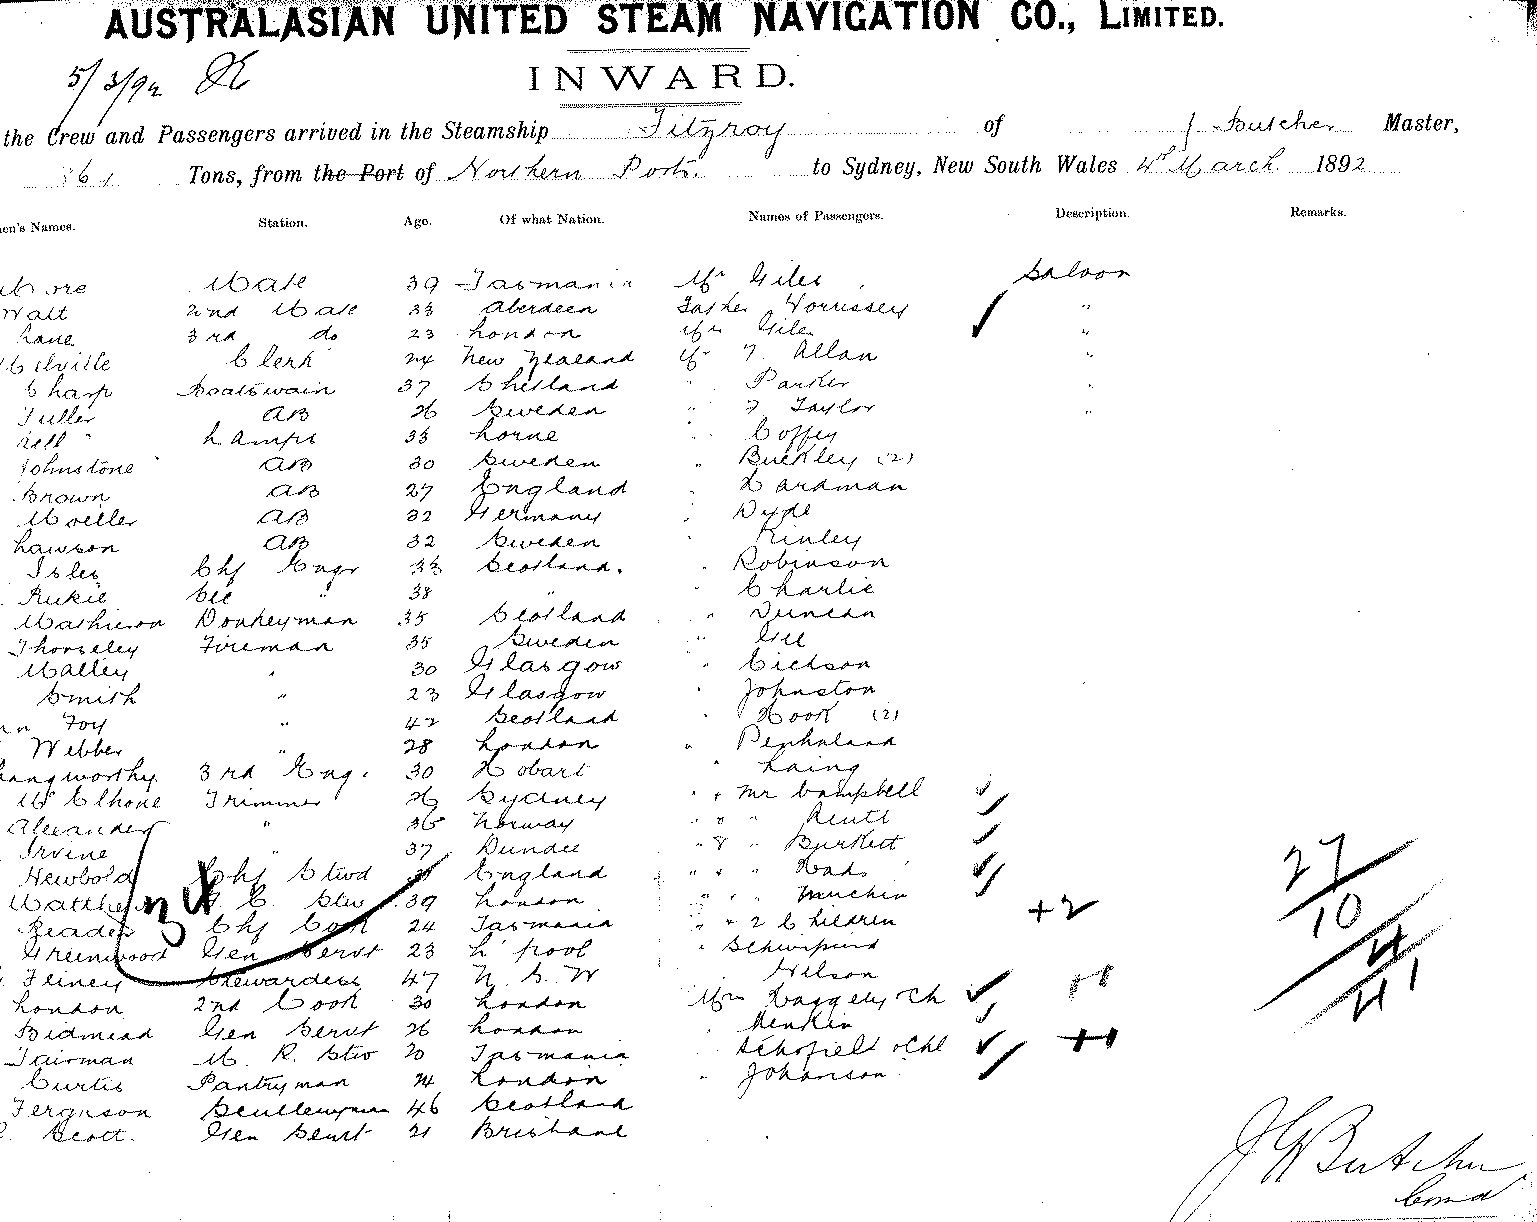 AUSTRALASIAN UNITED STEAM NAVIGATION CO., LIMITED.
5/3/92
INWARD.
the Crew and Passengers arrived in the Steamship Fitzroy of J Butcher Master,
861 Tons, from the Port of Northern Ports. to Sydney, New South Wales 4th March 1892
men's Names. Station. Age. Of what Nation. Names of Passengers. Description. Remarks.
Mate 39 Tasmania Mr Giles Saloon
Watt 2nd Mate 33 Aberdeen Father Morrissey "
Lane 3rd do 23 London Mrs Giles "
Melville Clerk 24 New Zealand Mr F. Allan "
Sharp Boatswain 37 Shetland " Parker "
Fuller AB 26 Sweden " F Taylor "
Lamps 33 Coffey
Johnstone AB 30 Sweden " Buckley (2)
Brown AB 27 England " Hardman
Moeller AB 32 Germany " Dyde
Lawson AB 32 Sweden " Kinley
Isles Chf Engr 33 Scotland. " Robinson
Rukie Sec " 38 " " Charlie
Mathieson Donkeyman 35 Scotland " Duncan
Thorseley Fireman 35 Sweden " Gee
Malley " 30 Glasgow "
Smith " 23 Glasgow " Johnston
Foy " 42 Scotland " Hook (2)
Webber " 28 London "
Langworthy 3rd Eng. 30 Hobart " Laing
McElhone Trimmer 26 Sydney " " Mr Campbell
Alexander " 36 Norway " " "
Irvine " 37 Dundee " " " Burkett
Newbold Chf Stwd England " " "
Matthew 39 London " " " Minchin
34
Reades Chf Cook 24 Tasmania " " 2 Children +2
Greenwood Gen Servt 23 L'pool "
Stewardess 47 N.S.W Wilson
London 2nd Cook 30 London Mrs Haggerty Ch
Bidmead Gen Servt 26 London "
Fairman M. R. Stw 20 Tasmania " Schofield & Chl
Curtis Pantryman 24 London " Johanson
Ferguson Sculleryman 46 Scotland
Scott. Gen Servt 21 Brisbane
27
10
4
41
J G Butcher
Comd